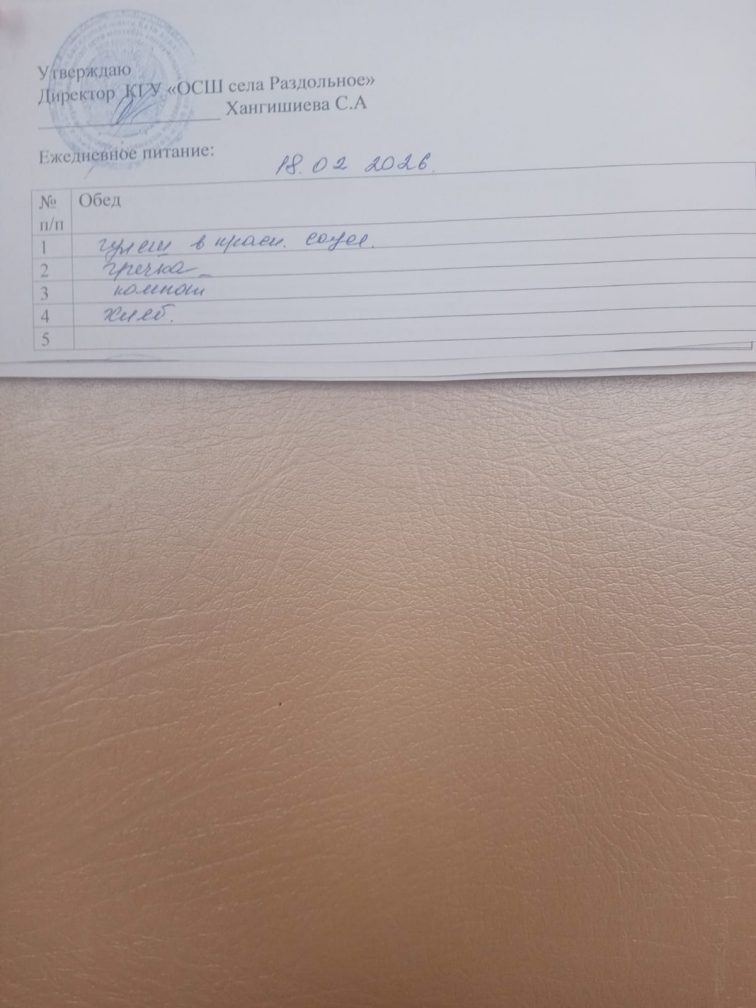 Утверждаю
Директор КГУ «ОСШ села Раздольное»
Хангишиева С.А
Ежедневное питание: 18.02 2026.
№ п/п Обед
1 гуляш в красн. соусе.
2 гречка
3 компот
4 хлеб.
5